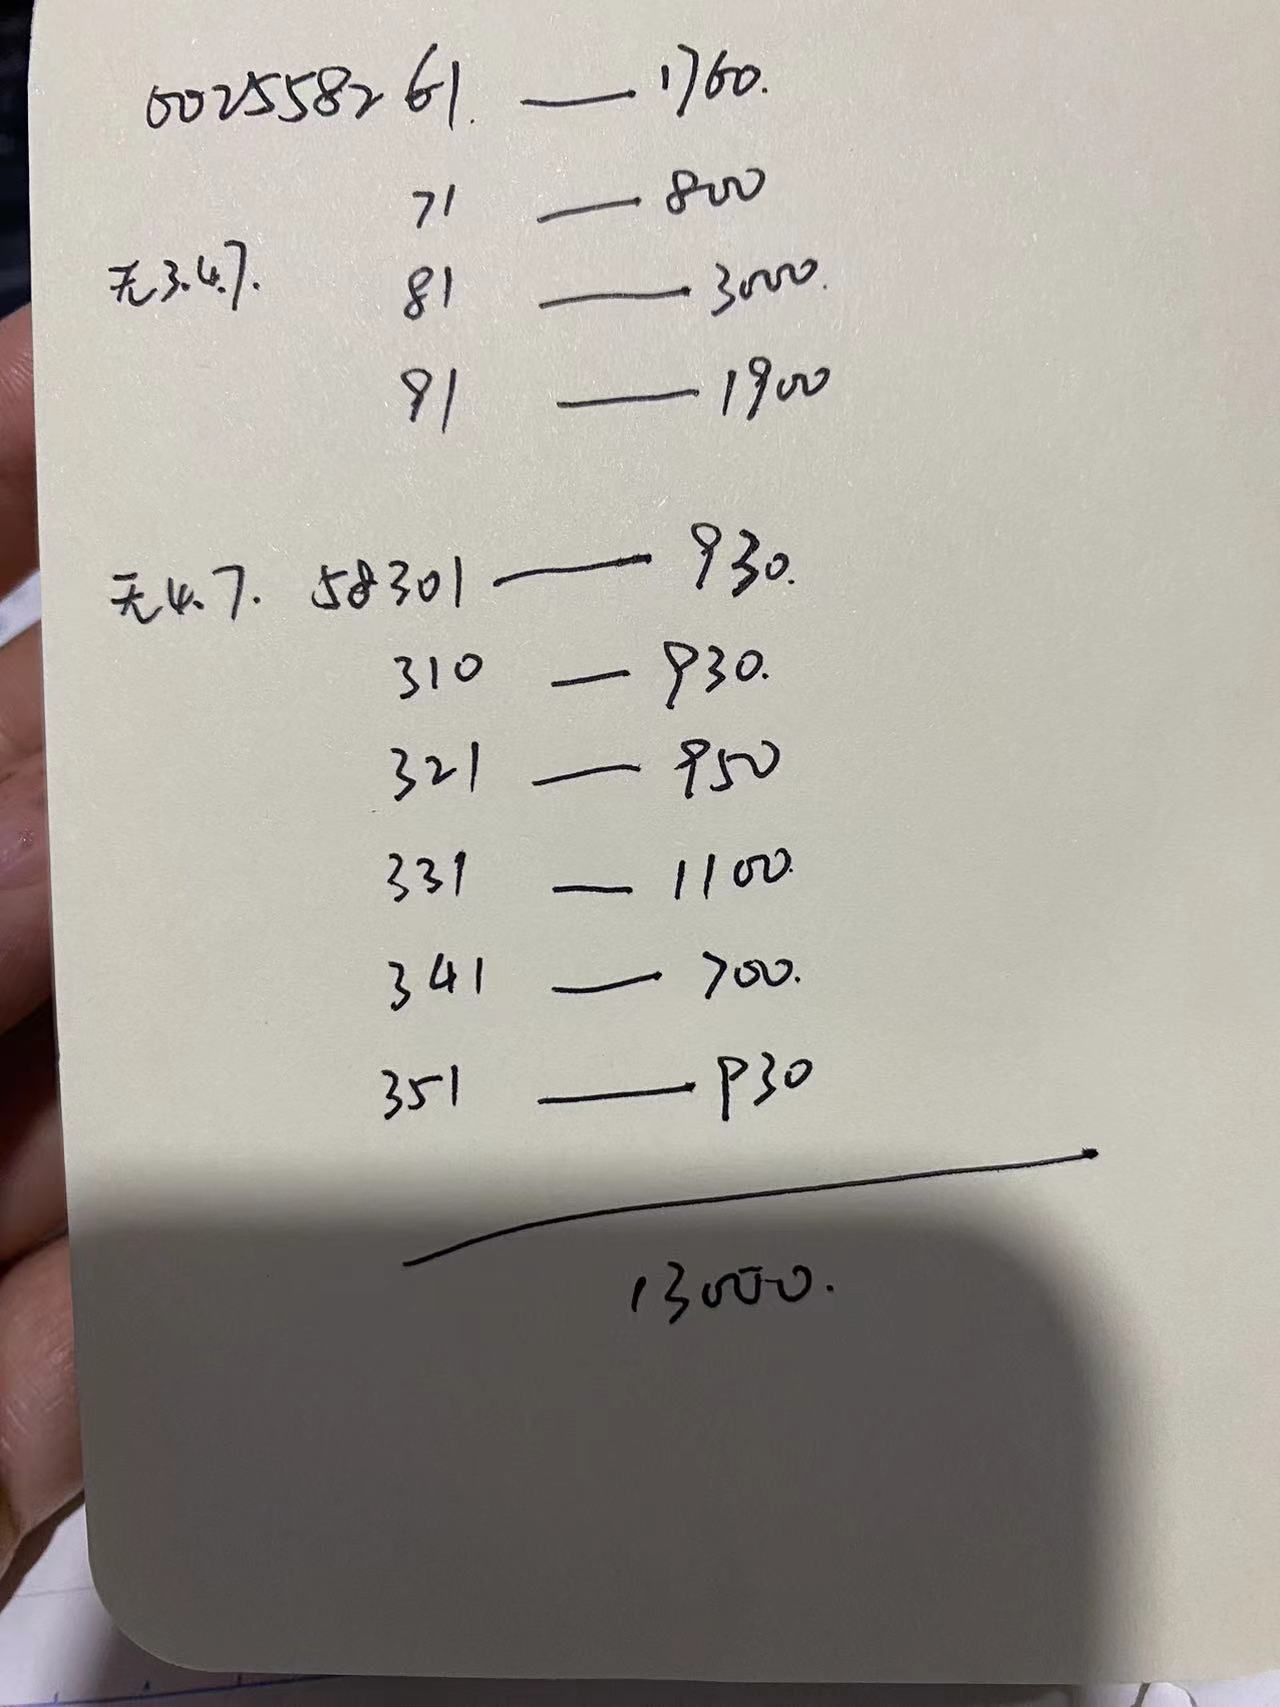 002558261. — 1760.
71 — 800
无3.4.7. 81 — 3000.
91 — 1900
无4.7. 58301 — 930.
310 — 930.
321 — 950
331 — 1100.
341 — 700.
351 — 930
13000.